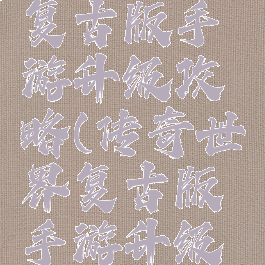 复古版手
游升级攻
略(传奇世
界复古版
手游升级